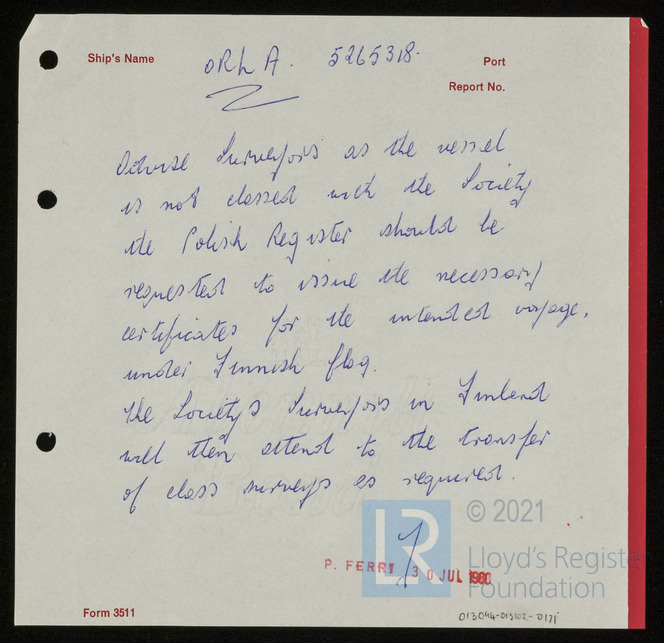 Ship's Name ORLA. 5265318. Port
Report No.
Advise Surveyors as the vessel
is not classed with the Society
the Polish Register should be
requested to issue the necessary
certificates for the intended voyage,
under Finnish flag.
The Society's Surveyors in Finland
will then attend to the transfer
of class surveys as required.
LR © 2021
Lloyd's Register
Foundation
P. FERRI 30 JUL 1980
Form 3511
013094-013102-0171